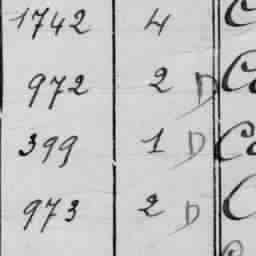 1742 4 C
972 2 D Co
399 1 D Co
973 2 D C